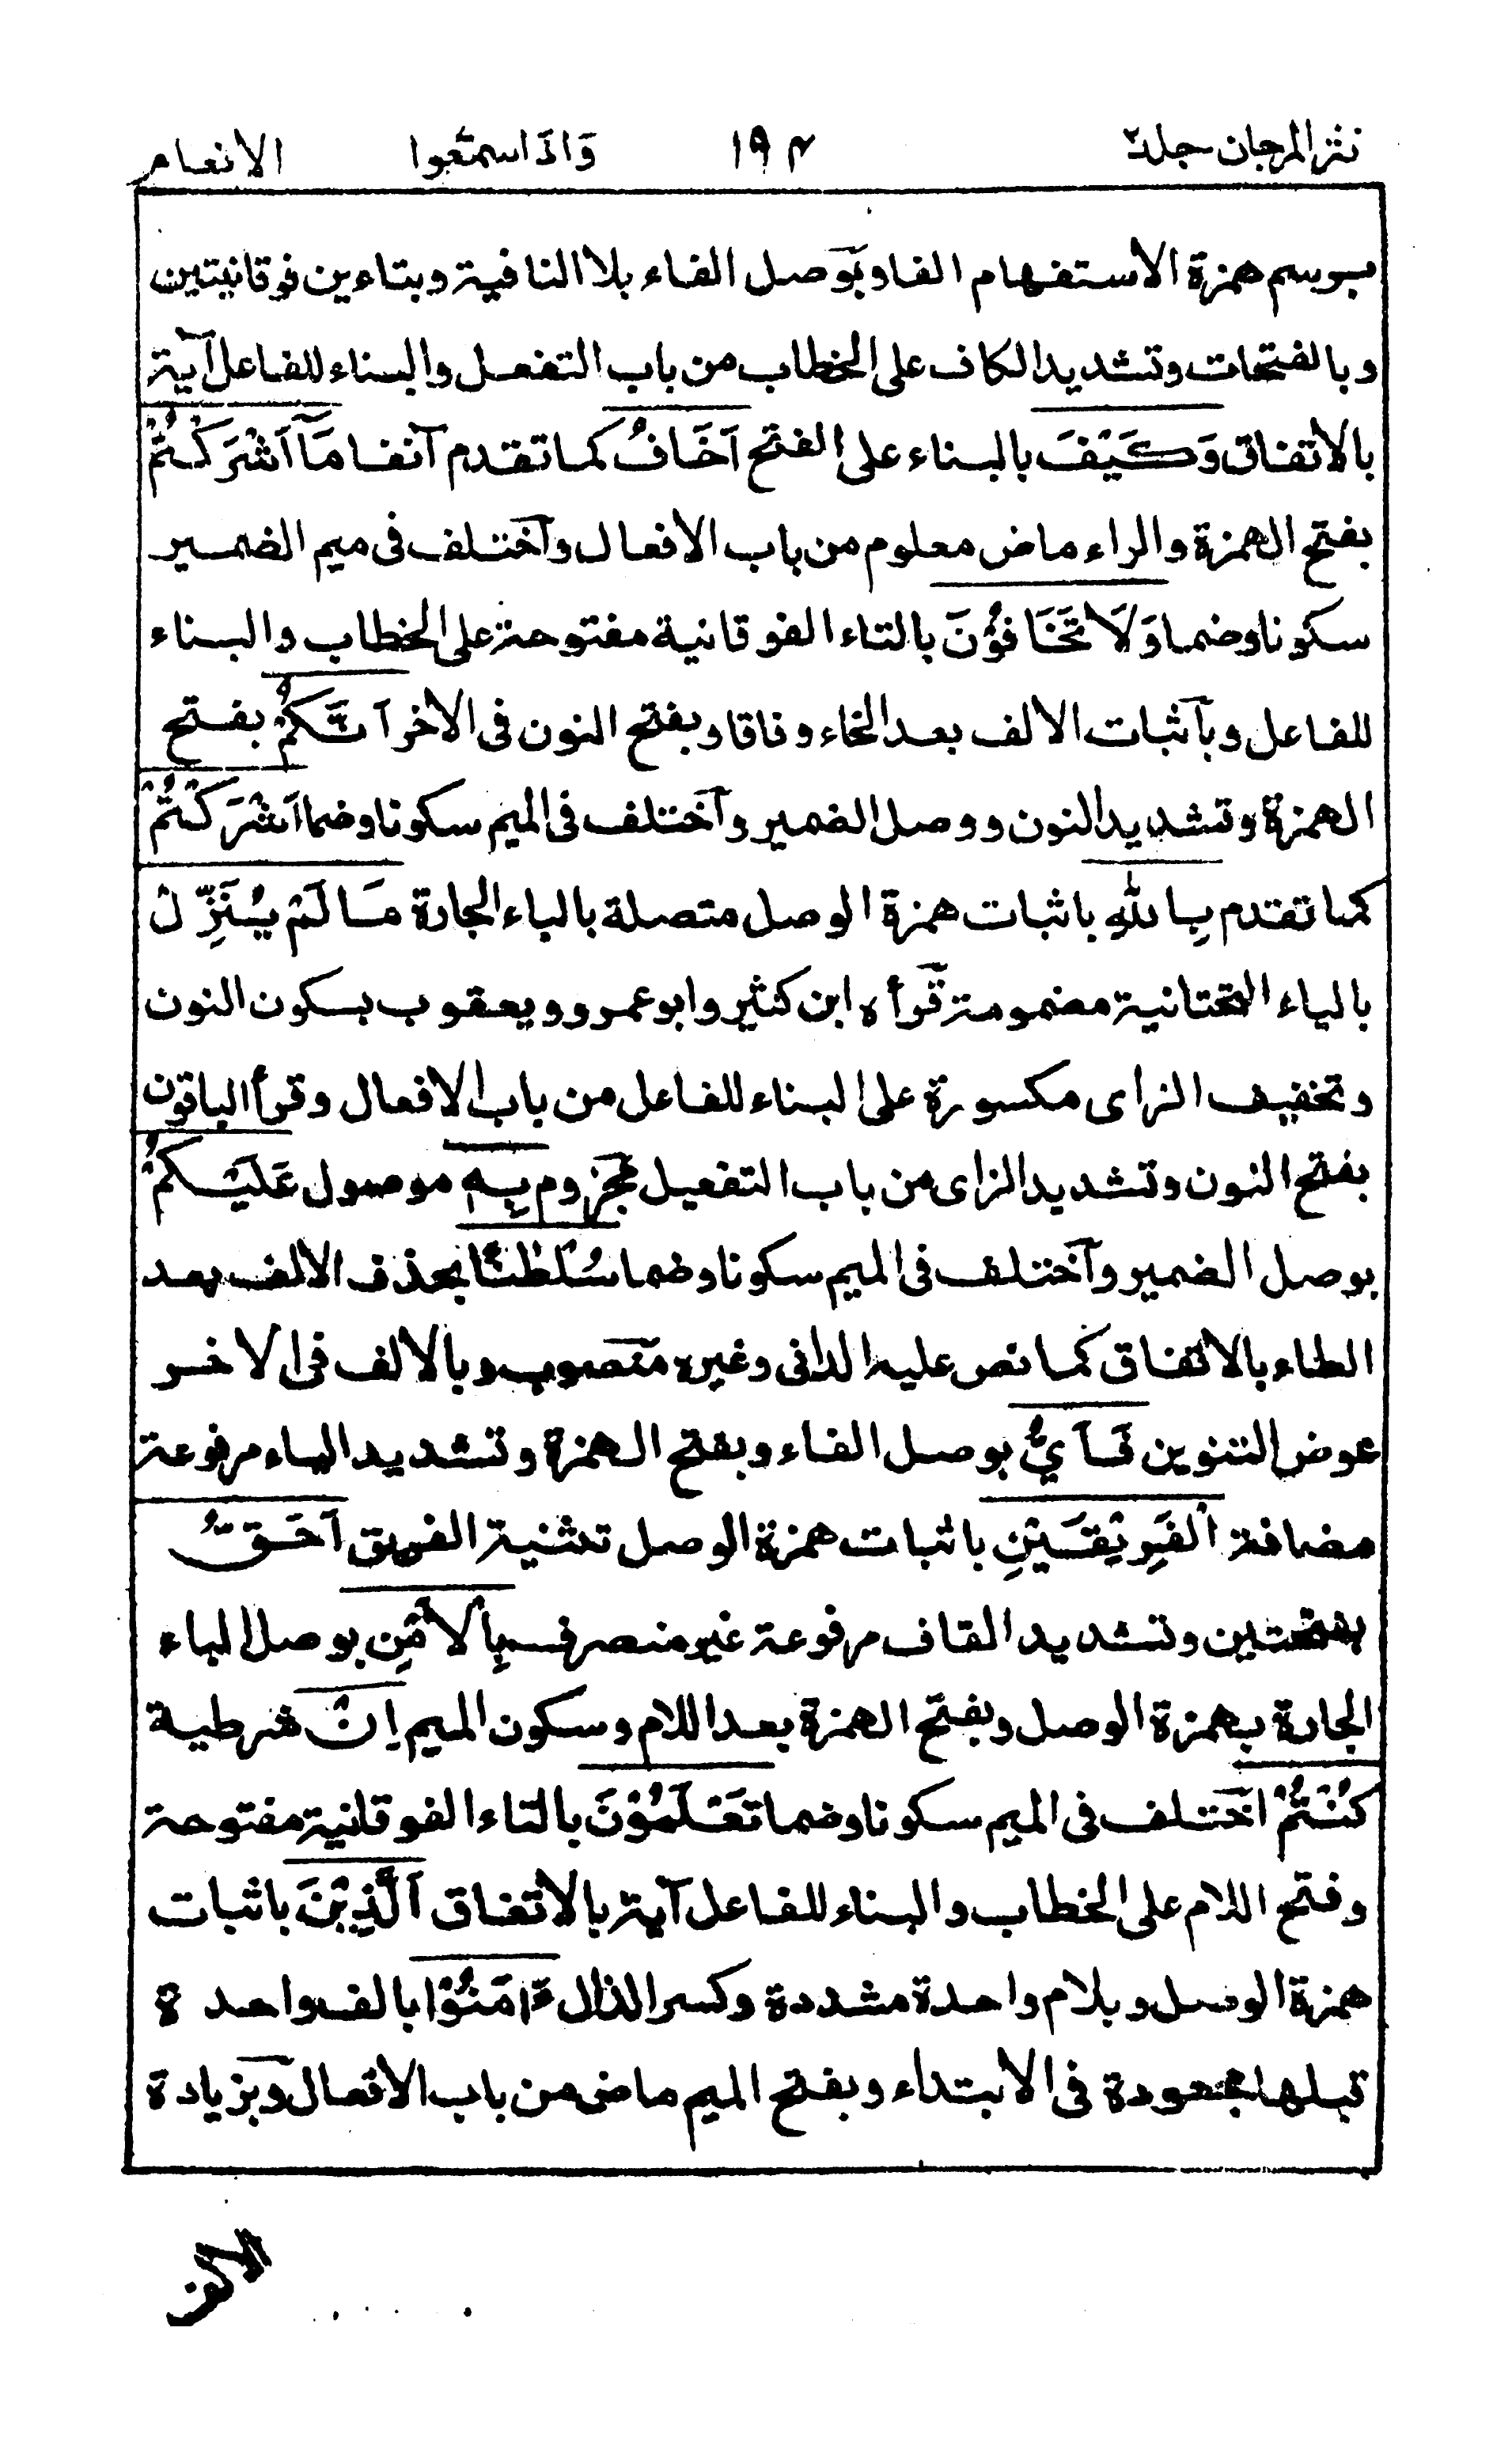 نثر المرجان جلد٢ ١٩٤ وَاذَا سمعُوا الانعام
برسم همزة الاستفهام الفا وبوَصل الفاء بلا النافية وبتاءين فوقانيتين
وبالفتحات وتشديد الكاف على الخطاب من باب التفعل والبناء للفاعل آية
بالاتفاق وَكَيْفَ بالبناء على الفتح اَخَافُ كما تقدم آنفا مَآ اَشْرَكْتُمْ
بفتح الهمزة والراء ماض معلوم من باب الافعال وآختلف فى ميم الضمير
سكونا وضما وَلَا تَخَافُوْنَ بالتاء الفوقانية مفتوحة على الخطاب والبناء
للفاعل وبآثبات الالف بعد الخاء وفاقا وبفتح النون فى الاخر اَنَّكُمْ بفتح
الهمزة وتشديد النون ووصل الضمير وآختلف فى الميم سكونا وضما اَشْرَكْتُمْ
كما تقدم بِاللهِ باثبات همزة الوصل متصلة بالباء الجارة مَا لَمْ يُنَزِّلْ
بالياء التحتانية مضمومة قرأه ابن كثير وابو عمرو ويعقوب بسكون النون
وتخفيف الزاى مكسورة على البناء للفاعل من باب الافعال وقرأ الباقون
بفتح النون وتشديد الزاى من باب التفعيل مجزوم بِهٖ موصول عَلَيْكُمْ
بوصل الضمير وآختلف فى الميم سكونا وضما سُلْطٰنًا بحذف الالف بعد
الطاء بالاتفاق كما نص عليه الدانى وغيره منصوب وبالالف فى الاخر
عوض التنوين فَاَيُّ بوصل الفاء وبفتح الهمزة وتشديد الياء مرفوعة
مضافة اَلْفَرِيْقَيْنِ باثبات همزة الوصل تثنية الفريق اَحَقُّ
بفتحتين وتشديد القاف مرفوعة غير منصرف بِالْاَمْنِ بوصل الباء
الجارة بهمزة الوصل وبفتح الهمزة بعد اللام وسكون الميم اِنْ شرطية
كُنْتُمْ اختلف فى الميم سكونا وضما تَعْلَمُوْنَ بالتاء الفوقانية مفتوحة
وفتح اللام على الخطاب والبناء للفاعل آية بالاتفاق اَلَّذِيْنَ باثبات
همزة الوصل وبلام واحدة مشددة وكسر الذال ءامَنُوْا بالف واحدة
قبلها مجعودة فى الابتداء وبفتح الميم ماض من باب الافعال وبزيادة
الالف